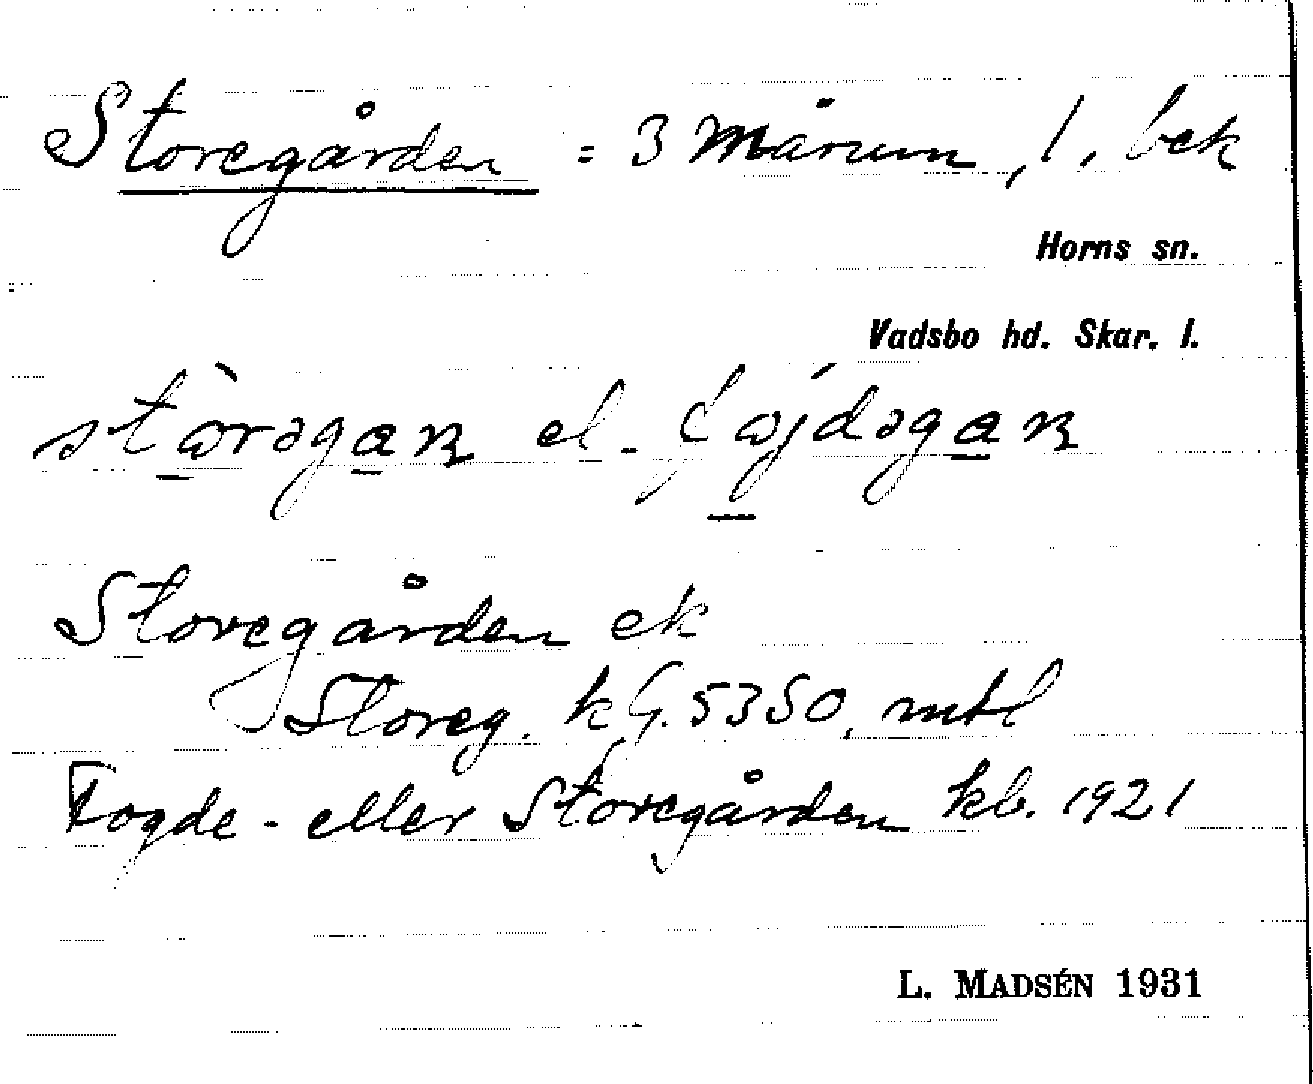 Storegården = 3 Mårum, 1, bek
Horns sn.
Vadsbo hd. Skar. l.
el.
Storegården ek
Storeg. kG. 5350, mtl
Fogde- eller Storegården kb. 1921
L. MADSÉN 1931